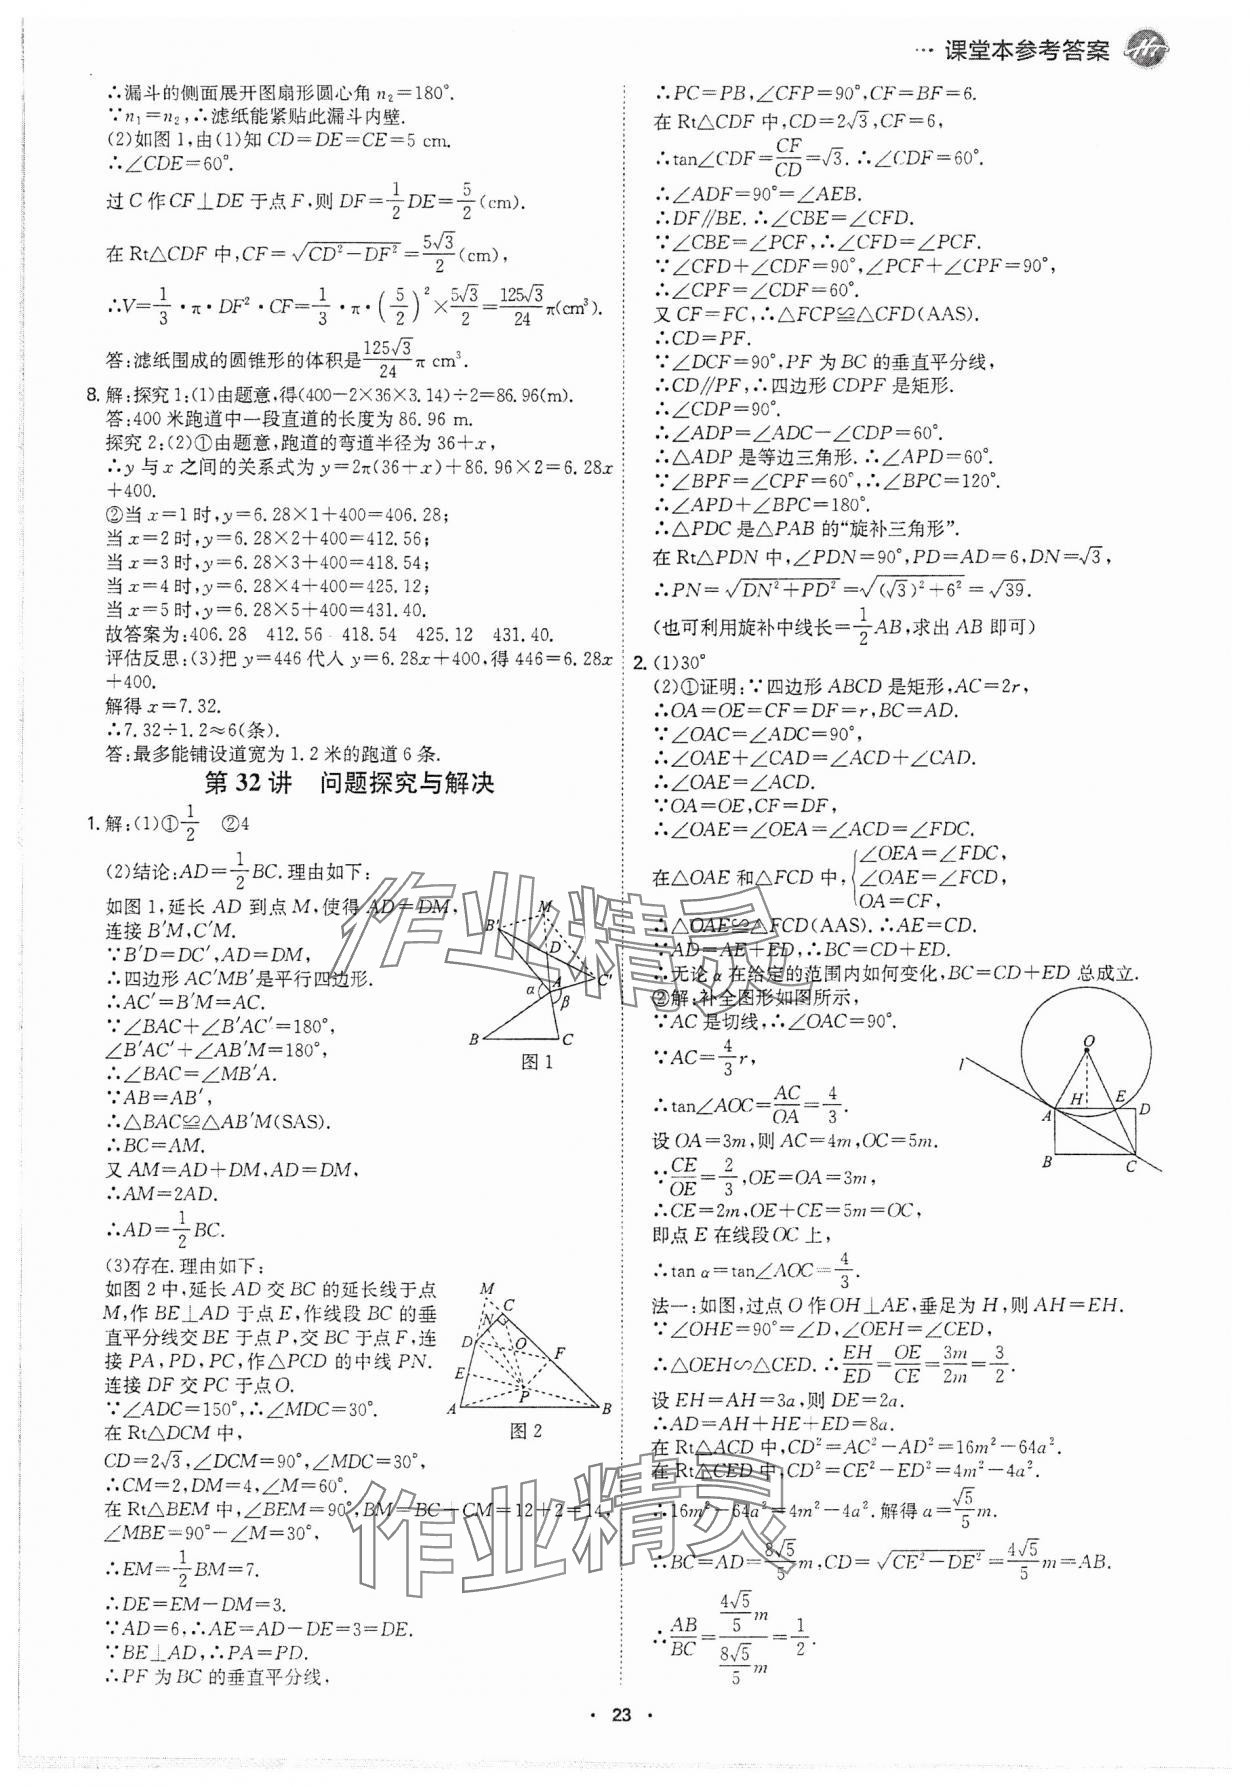 … 课堂本参考答案
∴漏斗的侧面展开图扇形圆心角 n₂=180°.
∵n₁=n₂,∴滤纸能紧贴此漏斗内壁.
(2)如图 1,由(1)知 CD=DE=CE=5 cm.
∴∠CDE=60°.
过 C 作 CF⊥DE 于点 F,则 DF=1/2 DE=5/2 (cm).
在 Rt△CDF 中,CF=√(CD²-DF²)=5√3/2 (cm),
∴V=1/3·π·DF²·CF=1/3·π·(5/2)²×5√3/2=125√3/24 π(cm³).
答:滤纸围成的圆锥形的体积是125√3/24 π cm³.
8. 解:探究 1:(1)由题意,得(400-2×36×3.14)÷2=86.96(m).
答:400 米跑道中一段直道的长度为 86.96 m.
探究 2:(2)①由题意,跑道的弯道半径为 36+x,
∴y 与 x 之间的关系式为 y=2π(36+x)+86.96×2=6.28x
+400.
②当 x=1 时,y=6.28×1+400=406.28;
当 x=2 时,y=6.28×2+400=412.56;
当 x=3 时,y=6.28×3+400=418.54;
当 x=4 时,y=6.28×4+400=425.12;
当 x=5 时,y=6.28×5+400=431.40.
故答案为:406.28 412.56 418.54 425.12 431.40.
评估反思:(3)把 y=446 代人 y=6.28x+400,得 446=6.28x
+400.
解得 x=7.32.
∴7.32÷1.2≈6(条).
答:最多能铺设道宽为 1.2 米的跑道 6 条.
第 32 讲 问题探究与解决
1. 解:(1)①1/2 ②4
(2)结论:AD=1/2 BC.理由如下:
如图 1,延长 AD 到点 M,使得 AD=DM,
连接 B′M,C′M.
∵B′D=DC′,AD=DM,
∴四边形 AC′MB′是平行四边形.
∴AC′=B′M=AC.
∵∠BAC+∠B′AC′=180°,
∠B′AC′+∠AB′M=180°,
∴∠BAC=∠MB′A.
∵AB=AB′,
∴△BAC≌△AB′M(SAS).
∴BC=AM.
又 AM=AD+DM,AD=DM,
∴AM=2AD.
∴AD=1/2 BC.
M
B′
D
A
C′
α
β
B
C
图 1
(3)存在.理由如下:
如图 2 中,延长 AD 交 BC 的延长线于点
M,作 BE⊥AD 于点 E,作线段 BC 的垂
直平分线交 BE 于点 P,交 BC 于点 F,连
接 PA,PD,PC,作△PCD 的中线 PN.
连接 DF 交 PC 于点 O.
∵∠ADC=150°,∴∠MDC=30°.
在 Rt△DCM 中,
CD=2√3,∠DCM=90°,∠MDC=30°,
∴CM=2,DM=4,∠M=60°.
在 Rt△BEM 中,∠BEM=90°,BM=BC+CM=12+2=14,
∠MBE=90°-∠M=30°,
∴EM=1/2 BM=7.
∴DE=EM-DM=3.
∵AD=6,∴AE=AD-DE=3=DE.
∵BE⊥AD,∴PA=PD.
∴PF 为 BC 的垂直平分线,
M
C
N
D
O
F
E
P
A
B
图 2
∴PC=PB,∠CFP=90°,CF=BF=6.
在 Rt△CDF 中,CD=2√3,CF=6,
∴tan∠CDF=CF/CD=√3.∴∠CDF=60°.
∴∠ADF=90°=∠AEB.
∴DF∥BE.∴∠CBE=∠CFD.
∵∠CBE=∠PCF,∴∠CFD=∠PCF.
∵∠CFD+∠CDF=90°,∠PCF+∠CPF=90°,
∴∠CPF=∠CDF=60°.
又 CF=FC,∴△FCP≌△CFD(AAS).
∴CD=PF.
∵∠DCF=90°,PF 为 BC 的垂直平分线,
∴CD∥PF,∴四边形 CDPF 是矩形.
∴∠CDP=90°.
∴∠ADP=∠ADC-∠CDP=60°.
∴△ADP 是等边三角形.∴∠APD=60°.
∵∠BPF=∠CPF=60°,∴∠BPC=120°.
∴∠APD+∠BPC=180°.
∴△PDC 是△PAB 的“旋补三角形”.
在 Rt△PDN 中,∠PDN=90°,PD=AD=6,DN=√3,
∴PN=√(DN²+PD²)=√((√3)²+6²)=√39.
(也可利用旋补中线长=1/2 AB,求出 AB 即可)
2. (1)30°
(2)①证明:∵四边形 ABCD 是矩形,AC=2r,
∴OA=OE=CF=DF=r,BC=AD.
∵∠OAC=∠ADC=90°,
∴∠OAE+∠CAD=∠ACD+∠CAD.
∴∠OAE=∠ACD.
∵OA=OE,CF=DF,
∴∠OAE=∠OEA=∠ACD=∠FDC.
在△OAE 和△FCD 中,{∠OEA=∠FDC,
∠OAE=∠FCD,
OA=CF,
∴△OAE≌△FCD(AAS).∴AE=CD.
∵AD=AE+ED,∴BC=CD+ED.
∴无论 α 在给定的范围内如何变化,BC=CD+ED 总成立.
②解:补全图形如图所示,
∵AC 是切线,∴∠OAC=90°.
∵AC=4/3 r,
∴tan∠AOC=AC/OA=4/3.
设 OA=3m,则 AC=4m,OC=5m.
∵CE/OE=2/3,OE=OA=3m,
∴CE=2m,OE+CE=5m=OC,
即点 E 在线段 OC 上,
∴tan α=tan∠AOC=4/3.
O
l
A
H
E
D
B
C
法一:如图,过点 O 作 OH⊥AE,垂足为 H,则 AH=EH.
∵∠OHE=90°=∠D,∠OEH=∠CED,
∴△OEH∽△CED.∴EH/ED=OE/CE=3m/2m=3/2.
设 EH=AH=3a,则 DE=2a.
∴AD=AH+HE+ED=8a.
在 Rt△ACD 中,CD²=AC²-AD²=16m²-64a².
在 Rt△CED 中,CD²=CE²-ED²=4m²-4a².
∴16m²-64a²=4m²-4a².解得 a=√5/5 m.
∴BC=AD=8√5/5 m,CD=√(CE²-DE²)=4√5/5 m=AB.
∴AB/BC=(4√5/5 m)/(8√5/5 m)=1/2.
作业精灵
作业精灵
· 23 ·